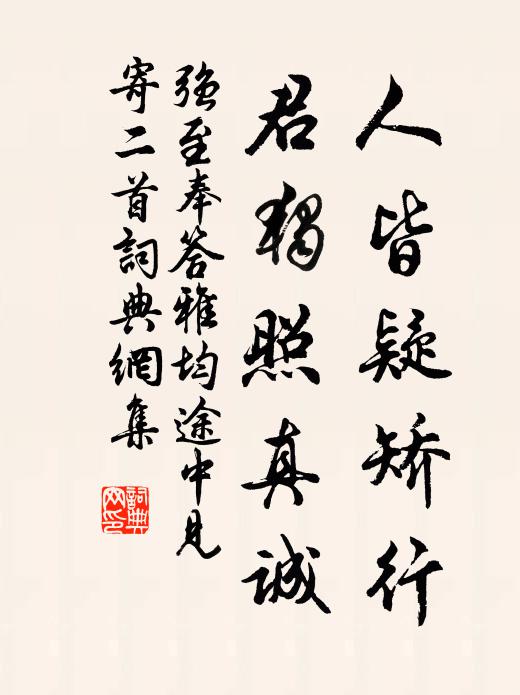 人皆疑矫行
君独照真诚
强至奉答雅均途中见
寄二首詞典網集
詞典網印